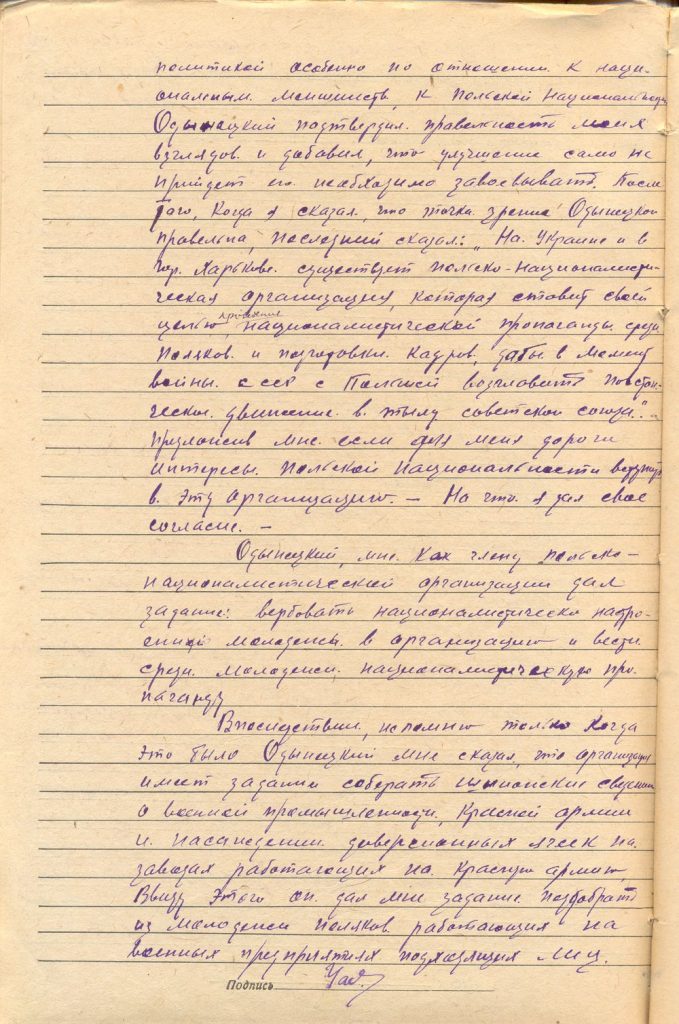 политикой особенно по отношении к наци-
ональным меншинств, к польской национальности
Одынецкий подтвердил правельность моих
взглядов и добавил, что улучшение само не
прийдет его необходимо завоевывать. После
того, когда я сказал, что точка зрение Одынецкой
правельна, последний сказал: „На Украине и в
гор. Харькове существует польско-националисти-
ческая организация, которая ставит своей
целью проведение националистической пропаганды среди
поляков и подготовки кадров, дабы в момент
войны СССР с Польшей возглавить повстан-
ческое движение в тылу советской союза".
предложив мне если для меня дороги
интересы польской национальности вступить
в эту организацию. — На что я дал свое
согласие. —
Одынецкий, мне как члену польско-
националистической организации дал
задание: вербовать националистически настро-
енной молодежь в организацию и вести
среди молодежи националистическую про-
паганду
Впоследствии, не помню только когда
это было Одынецкий мне сказал, что организация
имеет задание собирать шпионские сведения
о военной промышленности, красной армии
и насаждении диверсионных ячеек на
заводах работающих на красную армию,
Ввиду этого он дал мне задание подобрать
из молодежи поляков работающих на
военных предприятиях подходящих лиц.
Подпись